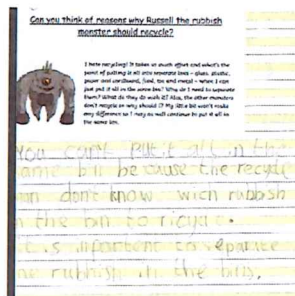 Can you think of reasons why Russell the rubbish
monster should recycle?
I hate recycling! It takes so much effort and what's the
point of putting it all into separate bins - glass, plastic,
paper and cardboard, food, tin and metal - when I can
just put it all in the same bin? Why do I need to separate
them? What do they do with it? Also, the other monsters
don't recycle so why should I? My little bit won't make
any difference so I may as well continue to put it all in
the same bin.
You cant put it all in the
ame bin because the recycle
an don't know wich rubbish
the bin to ricycle.
is inportent to separate
rubbish in the bins.